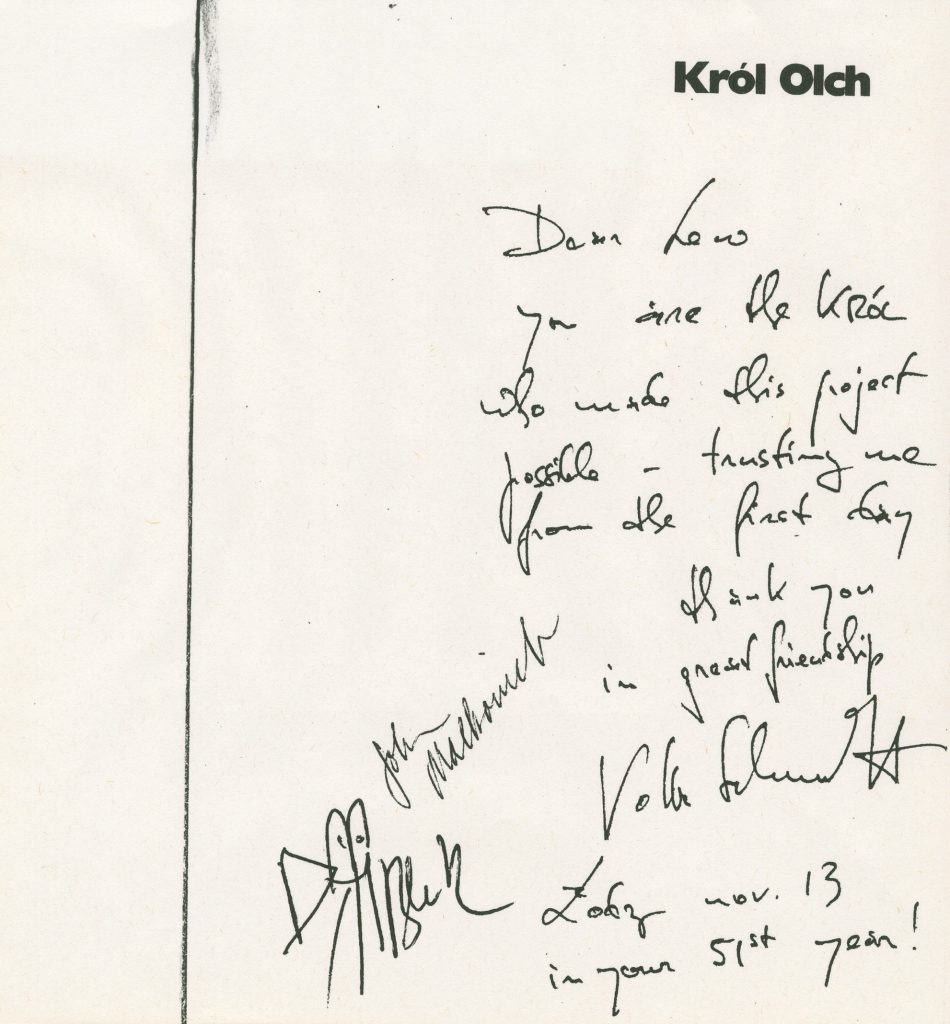 Król Olch
Dear Lew
you are the KRÓL
who made this project
possible – trusting me
from the first day
thank you
in great friendship
John
Malkovich
Volker Schlöndorff
Łódź nov. 13
in your 51st year!